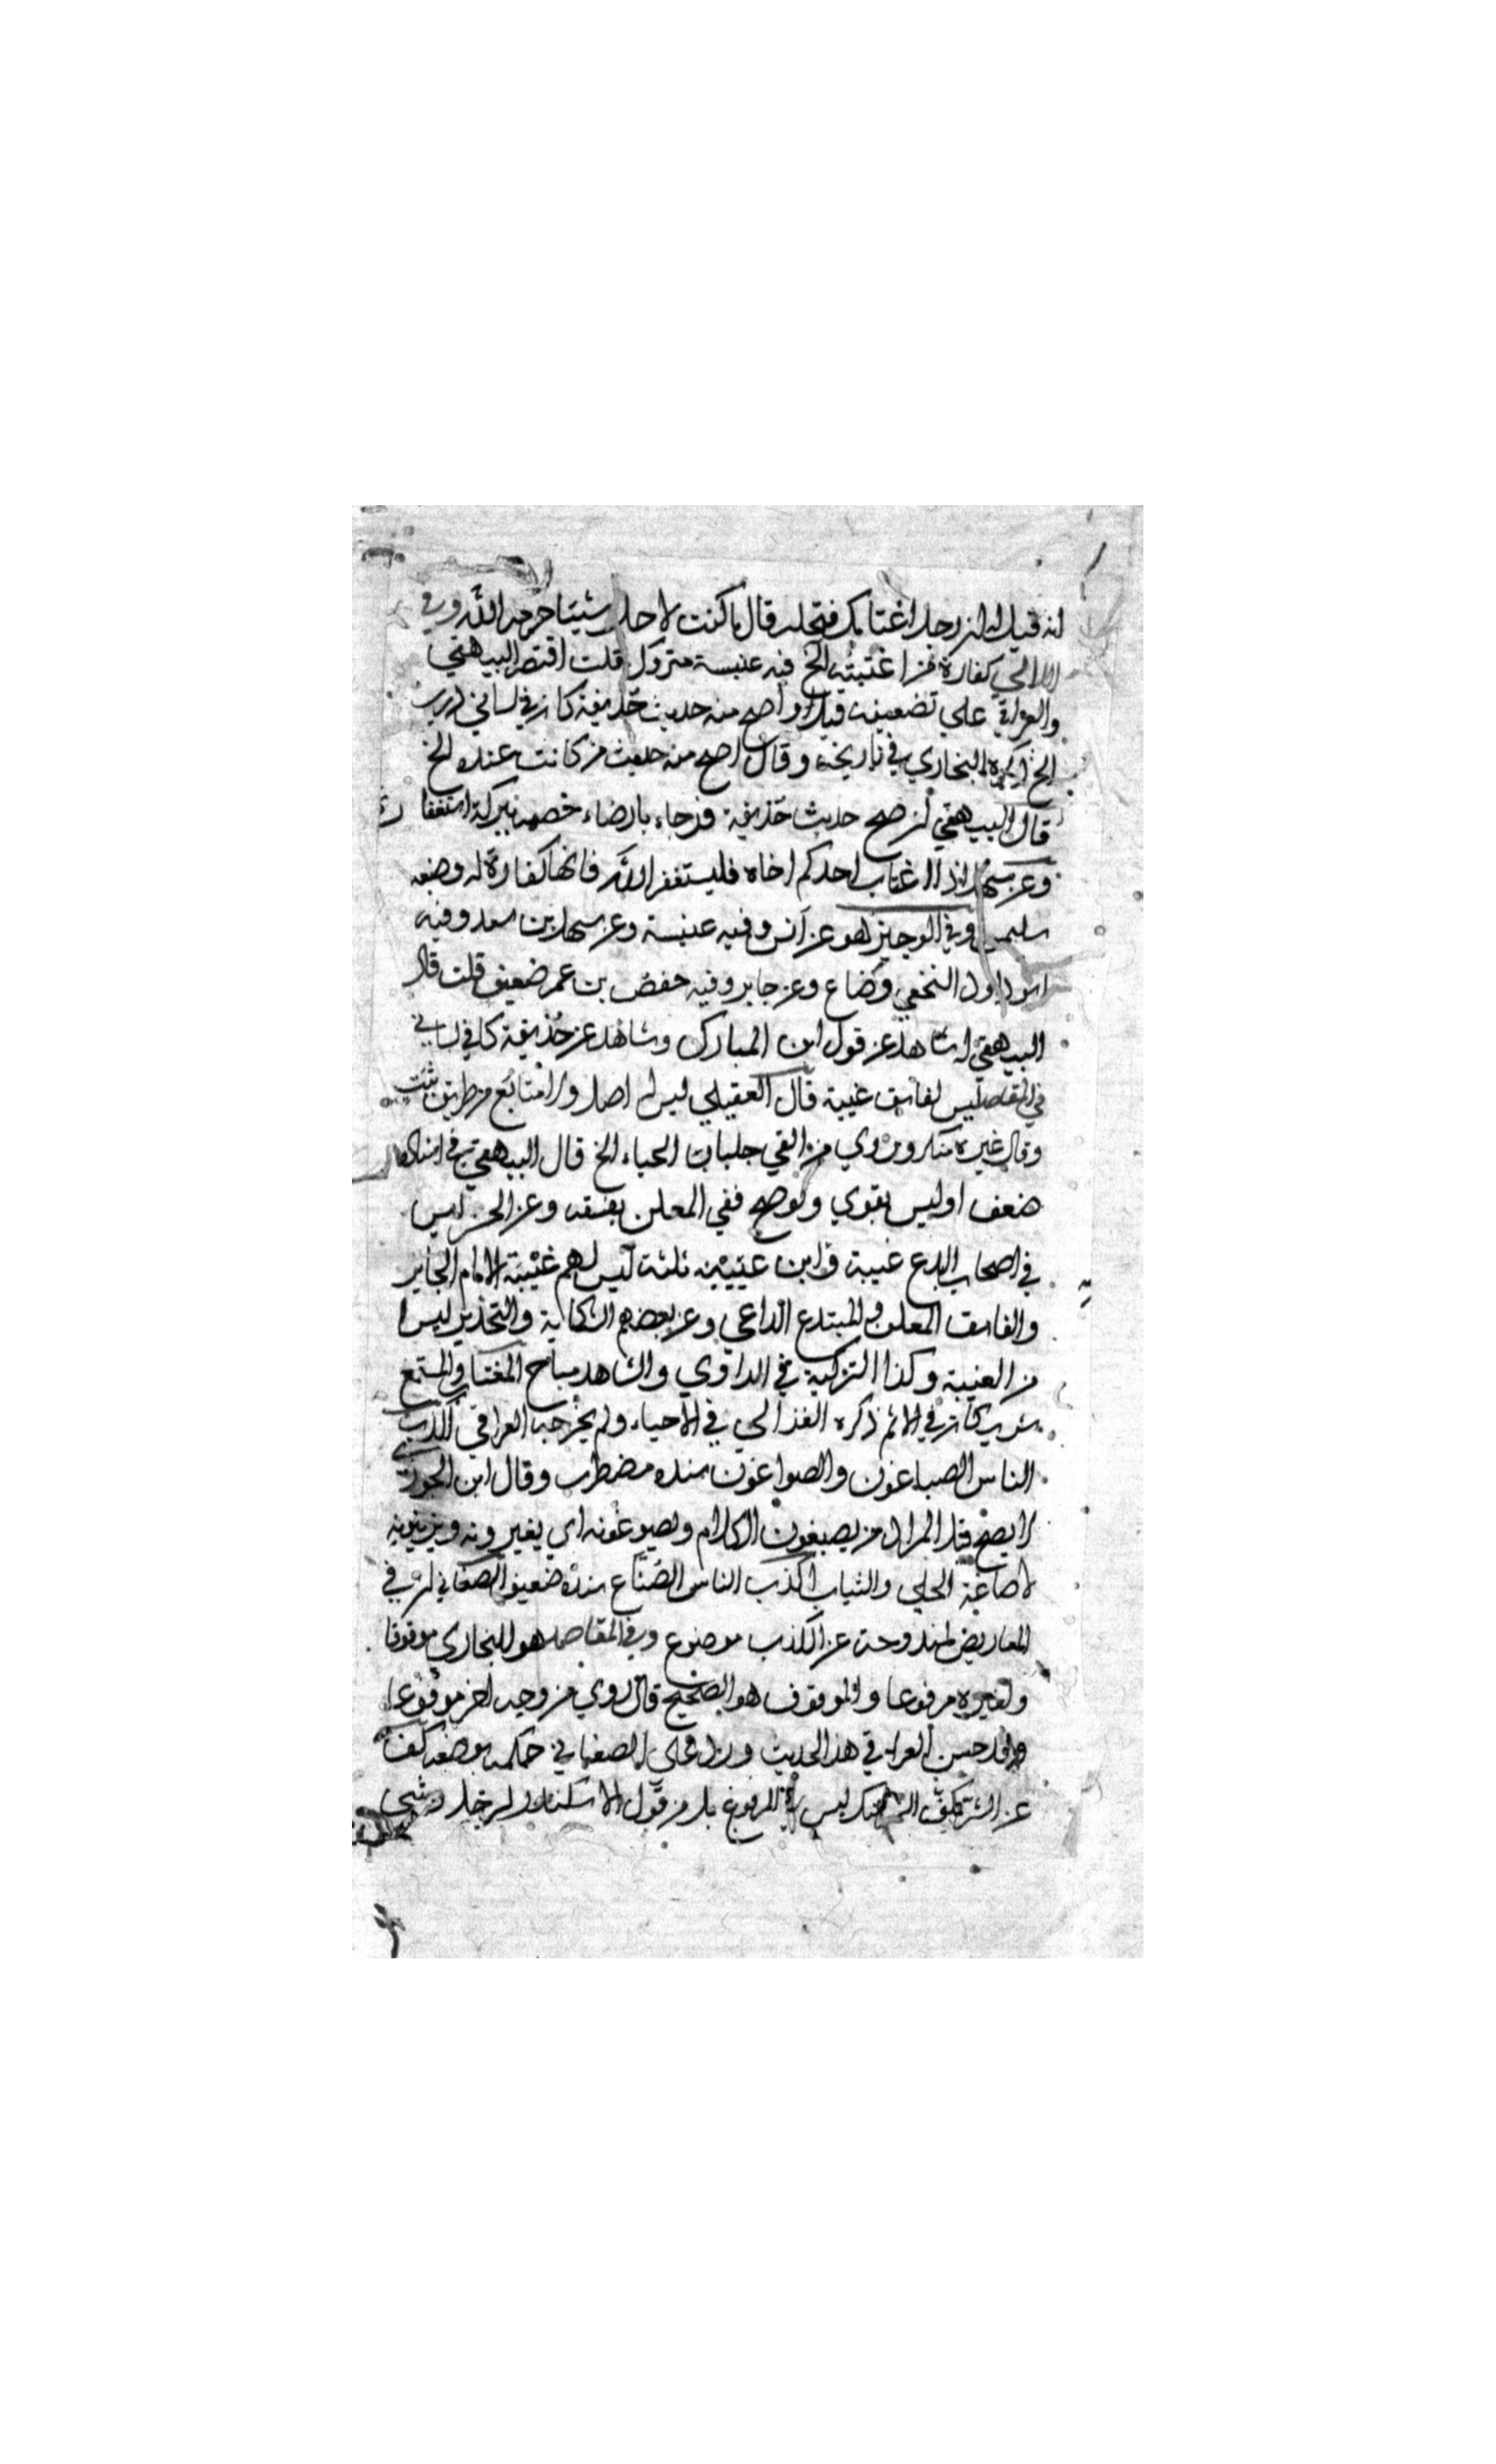 انه قيل له ان رجلا اغتابك فتحلله قال ما كنت لاحل شيئا حرمه الله وفي
اللالي كفارة من اغتبته الخ فيه عنبسة متروك قلت اقتصر البيهقي
والعراقي علي تضعيفه قيل واصح منه حديث حذيفة كان في لساني ذرب
الخ ذكره البخاري في تاريخه وقال اصح منه حديث من كانت عنده الخ
قال البيهقي ان صح حديث حذيفة فرجاء بارضاء خصمه ببركة استغفاره
وعن سهل اذا اغتاب احدكم اخاه فليستغفر الله فانها كفارة له وضعه
سليمن وفي الوجيز هو عن انس وفيه عنبسة وعن سهل بن سعد وفيه
ابو داود النخعي وضاع وعن جابر وفيه حفص بن عمر ضعيف قلت قال
البيهقي له شاهد عن قول ابن المبارك وشاهد عن حذيفة كا في لساني
في المقاصد ليس لفاسق غيبة قال العقيلي ليس له اصل ولا متابع من طريق يثبت
وقال غيره منكر وروي من القي جلباب الحياء الخ قال البيهقي في اسناده
ضعف او ليس بقوي ولو صح ففي المعلن بفسقه وعن الحسن ليس
في اصحاب البدع غيبة وابن عيينه ثلثة ليس لهم غيبة الامام الجاير
والفاسق المعلن والمبتدع الداعي وعن بعضهم الشكاية والتحذير ليسا
من الغيبة وكذا التزكية في الراوي والشاهد مباح المغتاب والمستمع
شريكان في الاثم ذكره الغزالي في الاحياء ولم يخرجه العراقي اكذب
الناس الصباغون والصواغون سنده مضطرب وقال ابن الجوزي
لا يصح قيل المراد من يصبغون الكلام ويصوغونه اي يغيرونه ويزينونه
لا صاغة الحلي والثياب اكذب الناس الصناع سنده ضعيف الصغاني ان في
المعاريض لمندوحة عن الكذب موضوع وفي المقاصد هو للبخاري موقوفا
ولغيره مرفوعا والموقوف هو الصحيح قال روي من وجه اخر مرفوعا
وقد حسن العراقي هذا الحديث ورد علي الصغاني حكمه بوضعه كف
عن الشر يكف الشر عنك ليس في المرفوع بل من قول الاسكندر لرجل وشي